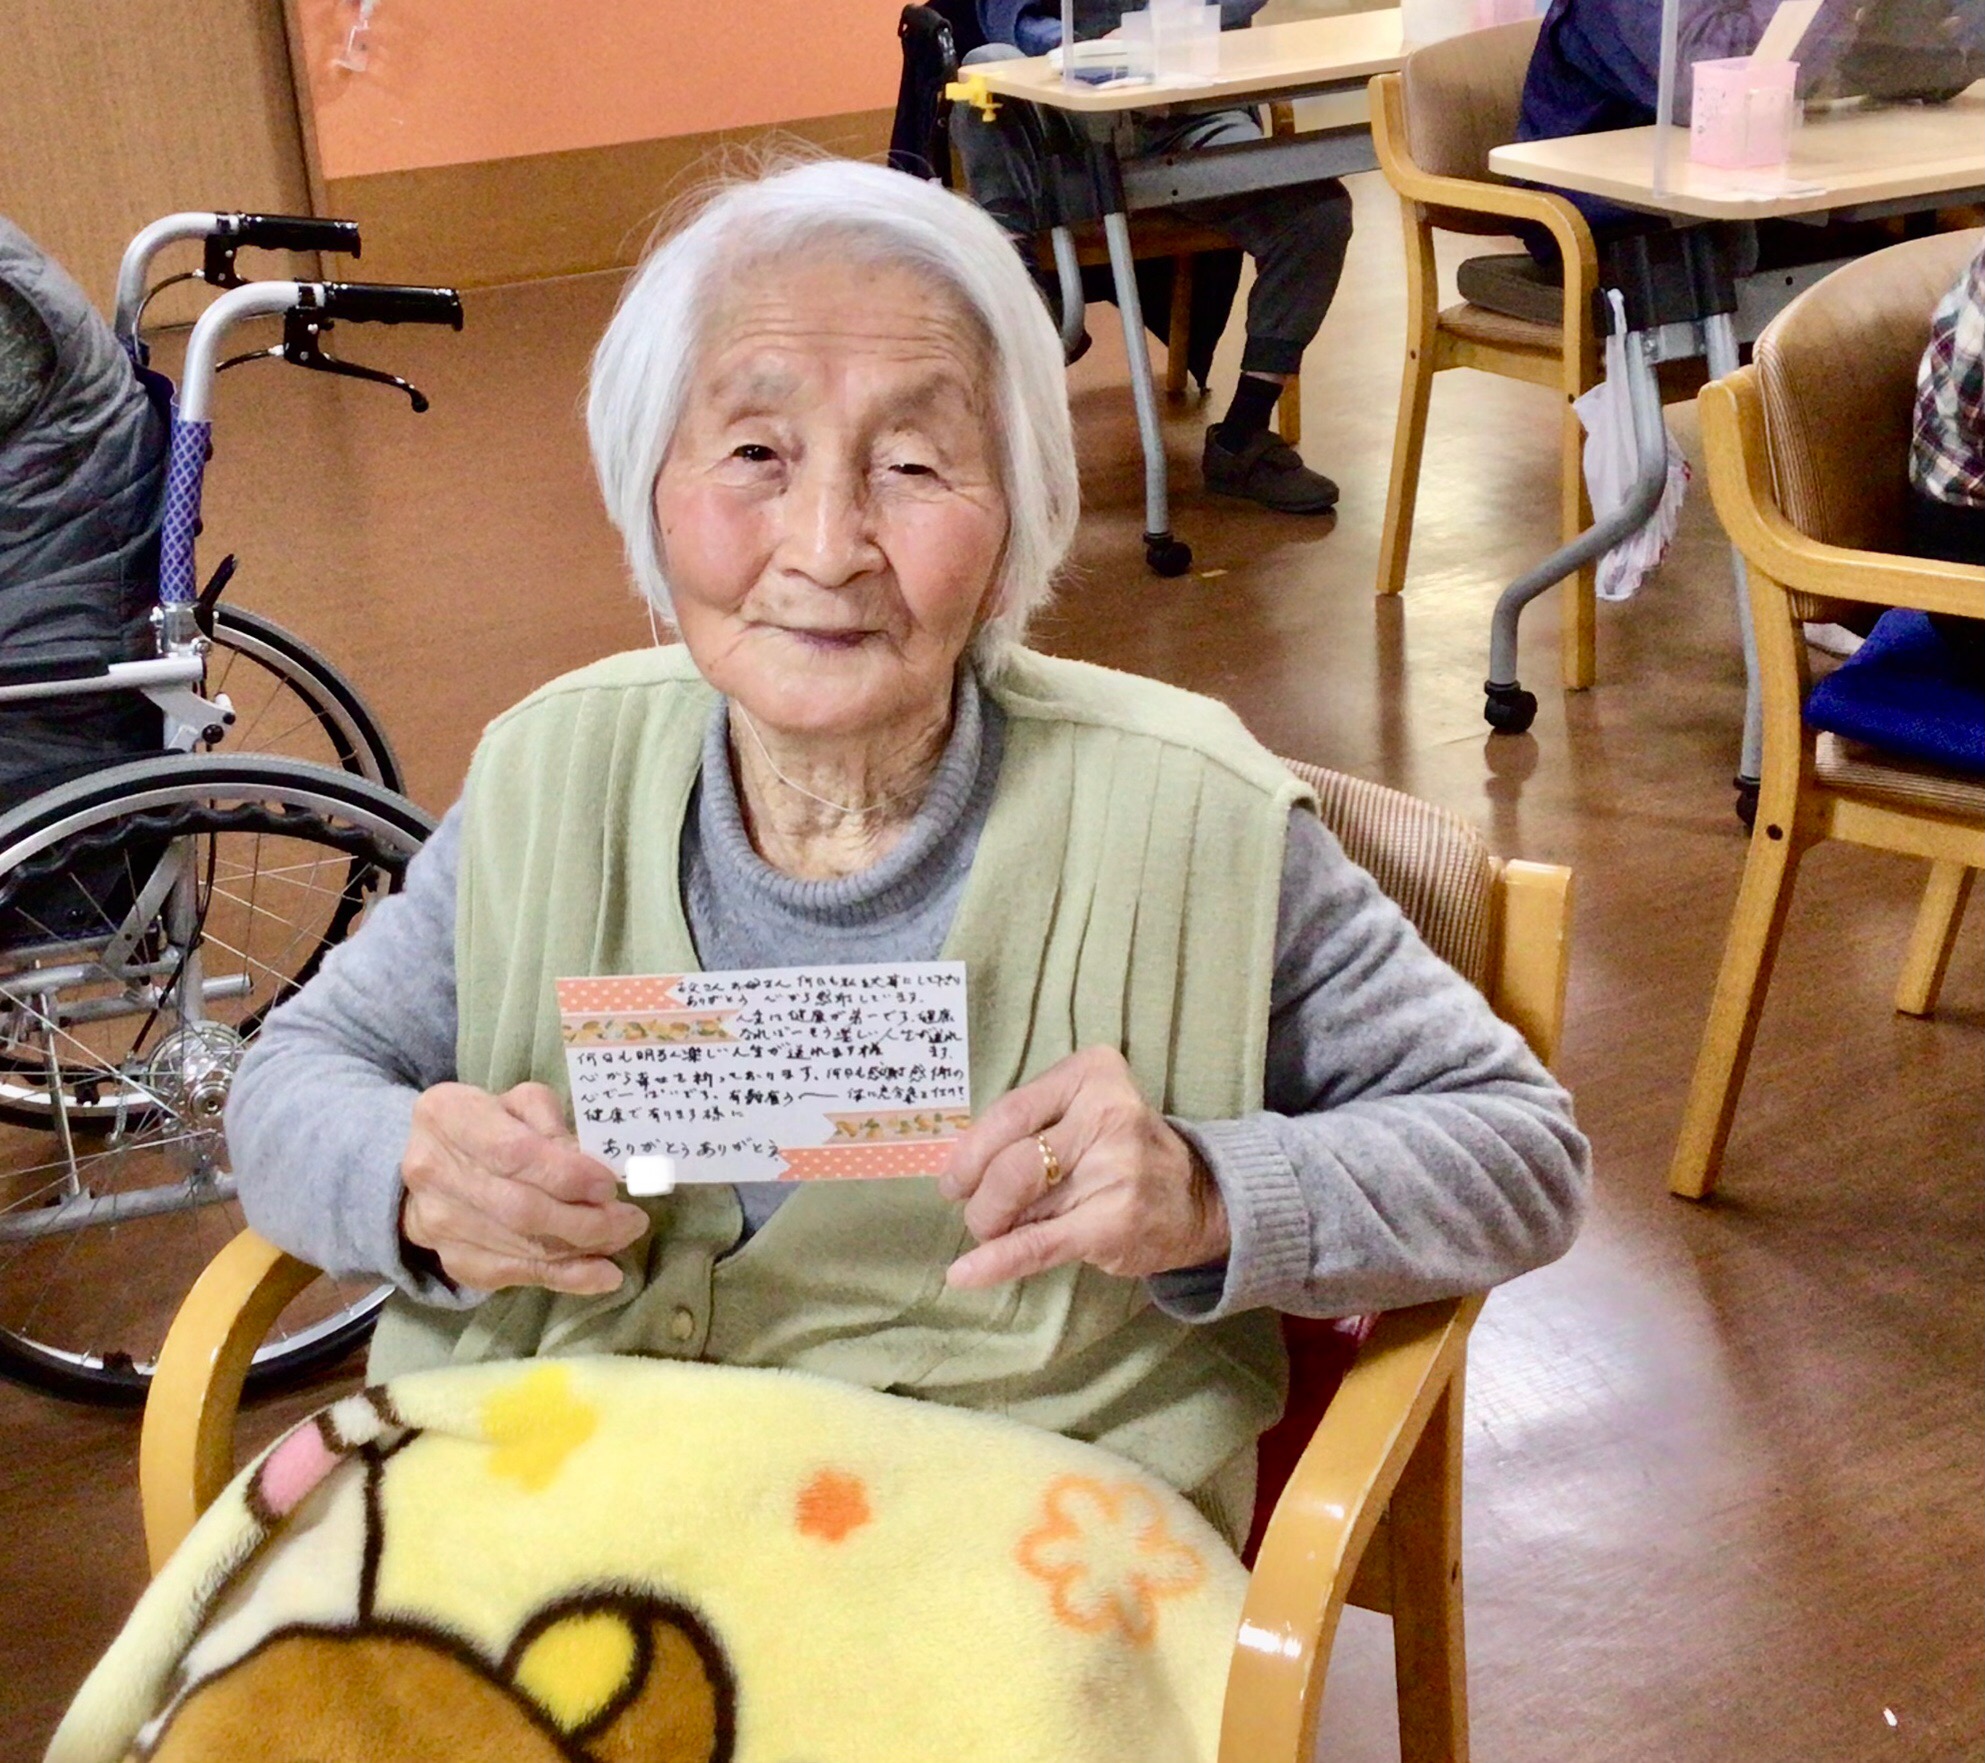 お父さんお母さん何日も私を大事にして下さり
ありがとう 心から感謝しています。
人生は健康が第一です。健康
なればーもう楽しい人生が送れ
ます。
何日も明るく楽しい人生が送れます様
心から幸せを祈っております。何日も感謝感謝の
心で一ぱいです。
健康で有ります様に
ありがとうありがとう